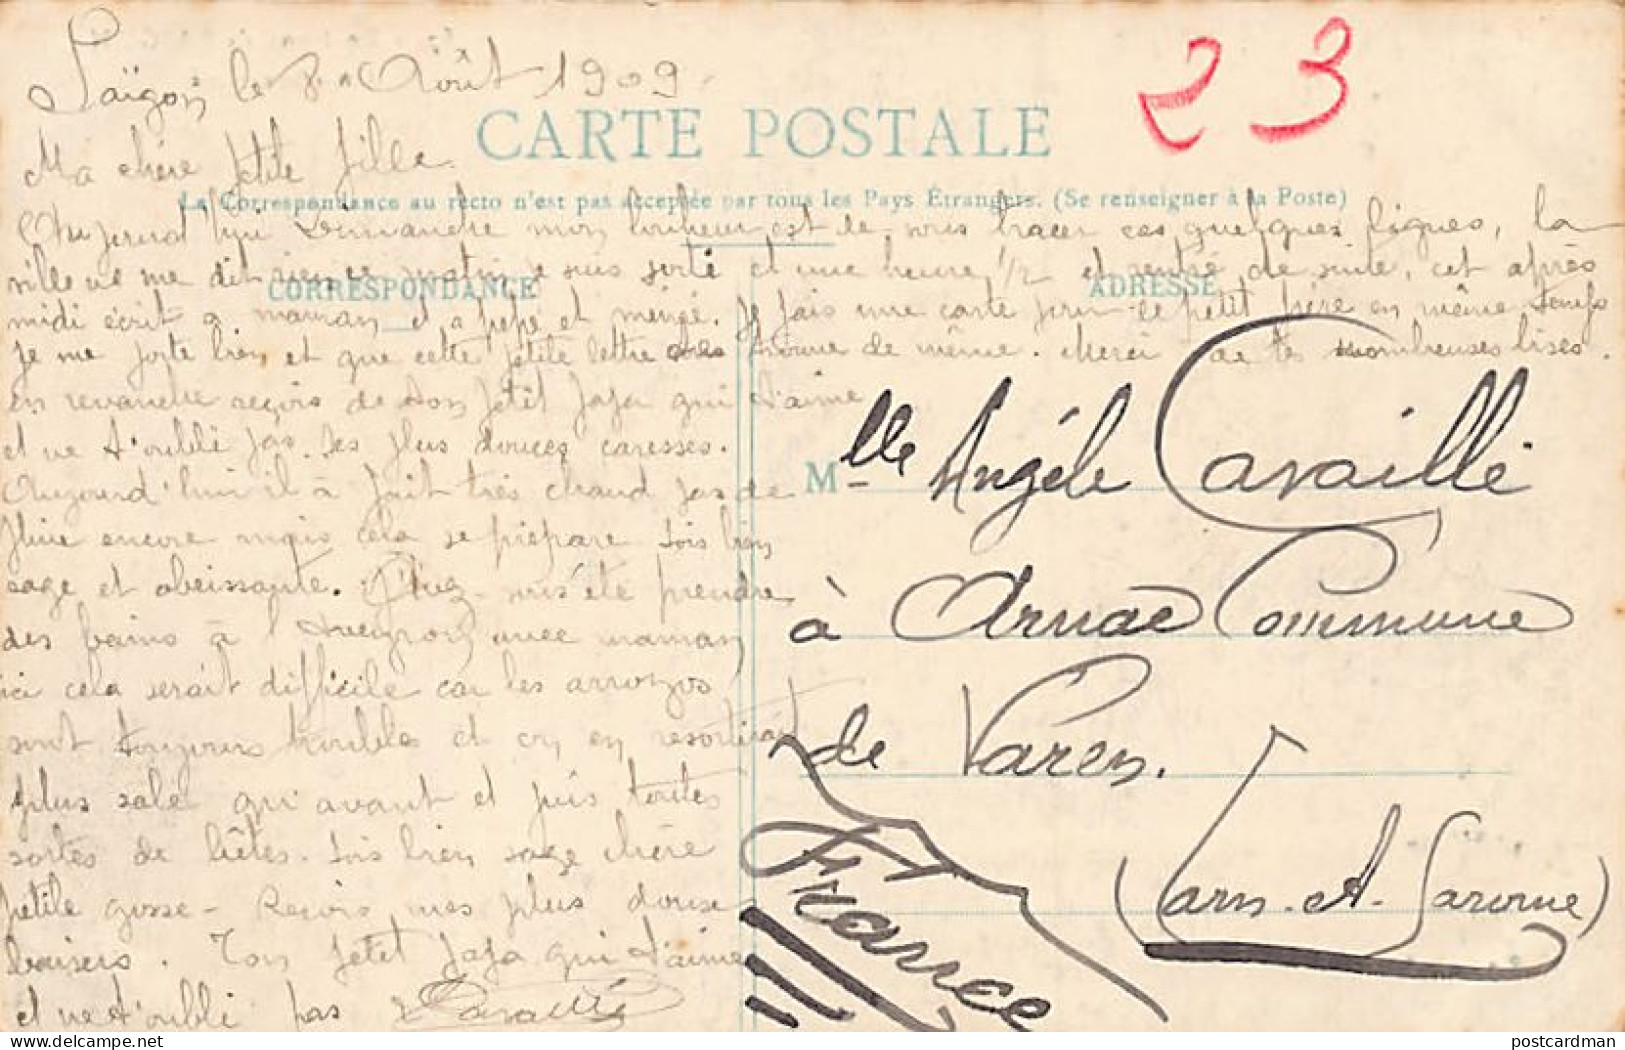 Saïgon le 8 Août 1909
23
CARTE POSTALE
Ma chère petite fille.
La Correspondance au recto n'est pas acceptée par tous les Pays Étrangers. (Se renseigner à la Poste)
Aujourd'hui Dimanche mon bonheur est de vous tracer ces quelques lignes, la
ville ne me dit rien ce matin je suis sorti et une heure 1/2 et rentré de suite, cet après
CORRESPONDANCE
ADRESSE
midi écrit a maman et a pépé et mémé. Je fais une carte pour le petit frère en même temps
je me porte bien et que cette petite lettre vous trouve de même. Merci de tes nombreuses bises.
en revanche reçois de ton petit papa qui t'aime
et ne t'oubli pas les plus douces caresses.
Aujourd'hui il à fait très chaud pas de
pluie encore mais cela se prépare sois bien
sage et obeissante. avez-vous été prendre
des bains à l'Aveyron avec maman
ici cela serait difficile car les arroyos
sont toujours troubles et on en resortirait
plus sale qu'avant et puis toutes
sortes de bêtes. Sois bien sage chère
petite gosse - Reçois mes plus doux
baisers. Ton petit papa qui t'aime
et ne t'oubli pas Cavaillé
Mlle Angéle Cavaillé
à Arnac Commune
de Varen.
(Tarn-et-Garonne)
France
postcardman